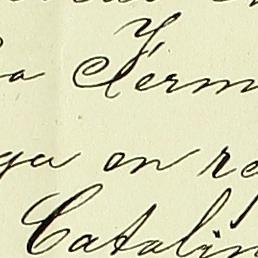 a Ferm
ga en re
Catalin